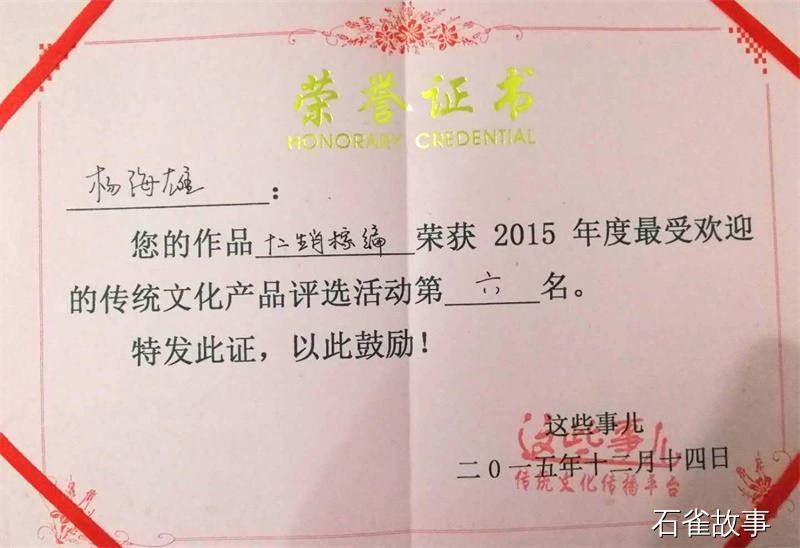 荣誉证书
HONORARY CREDENTIAL
杨海雄：
您的作品十二生肖棕编荣获 2015 年度最受欢迎
的传统文化产品评选活动第六名。
特发此证，以此鼓励！
这些事儿
这些事儿
二0一五年十二月十四日
传统文化传播平台
石雀故事